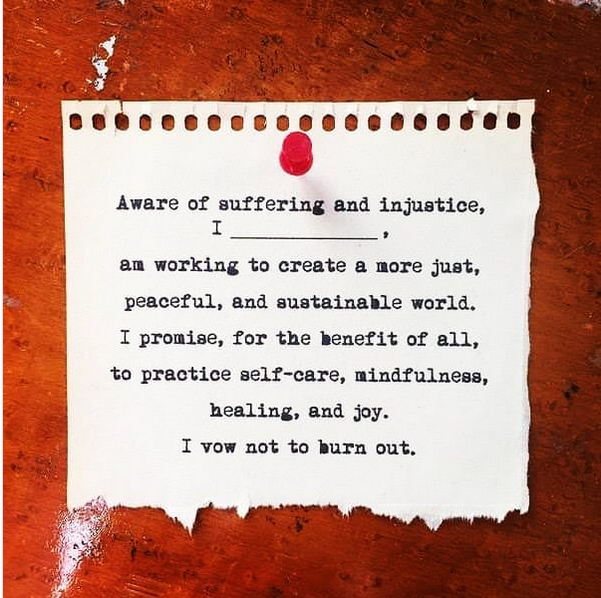 Aware of suffering and injustice,
I _____________,
am working to create a more just,
peaceful, and sustainable world.
I promise, for the benefit of all,
to practice self-care, mindfulness,
healing, and joy.
I vow not to burn out.